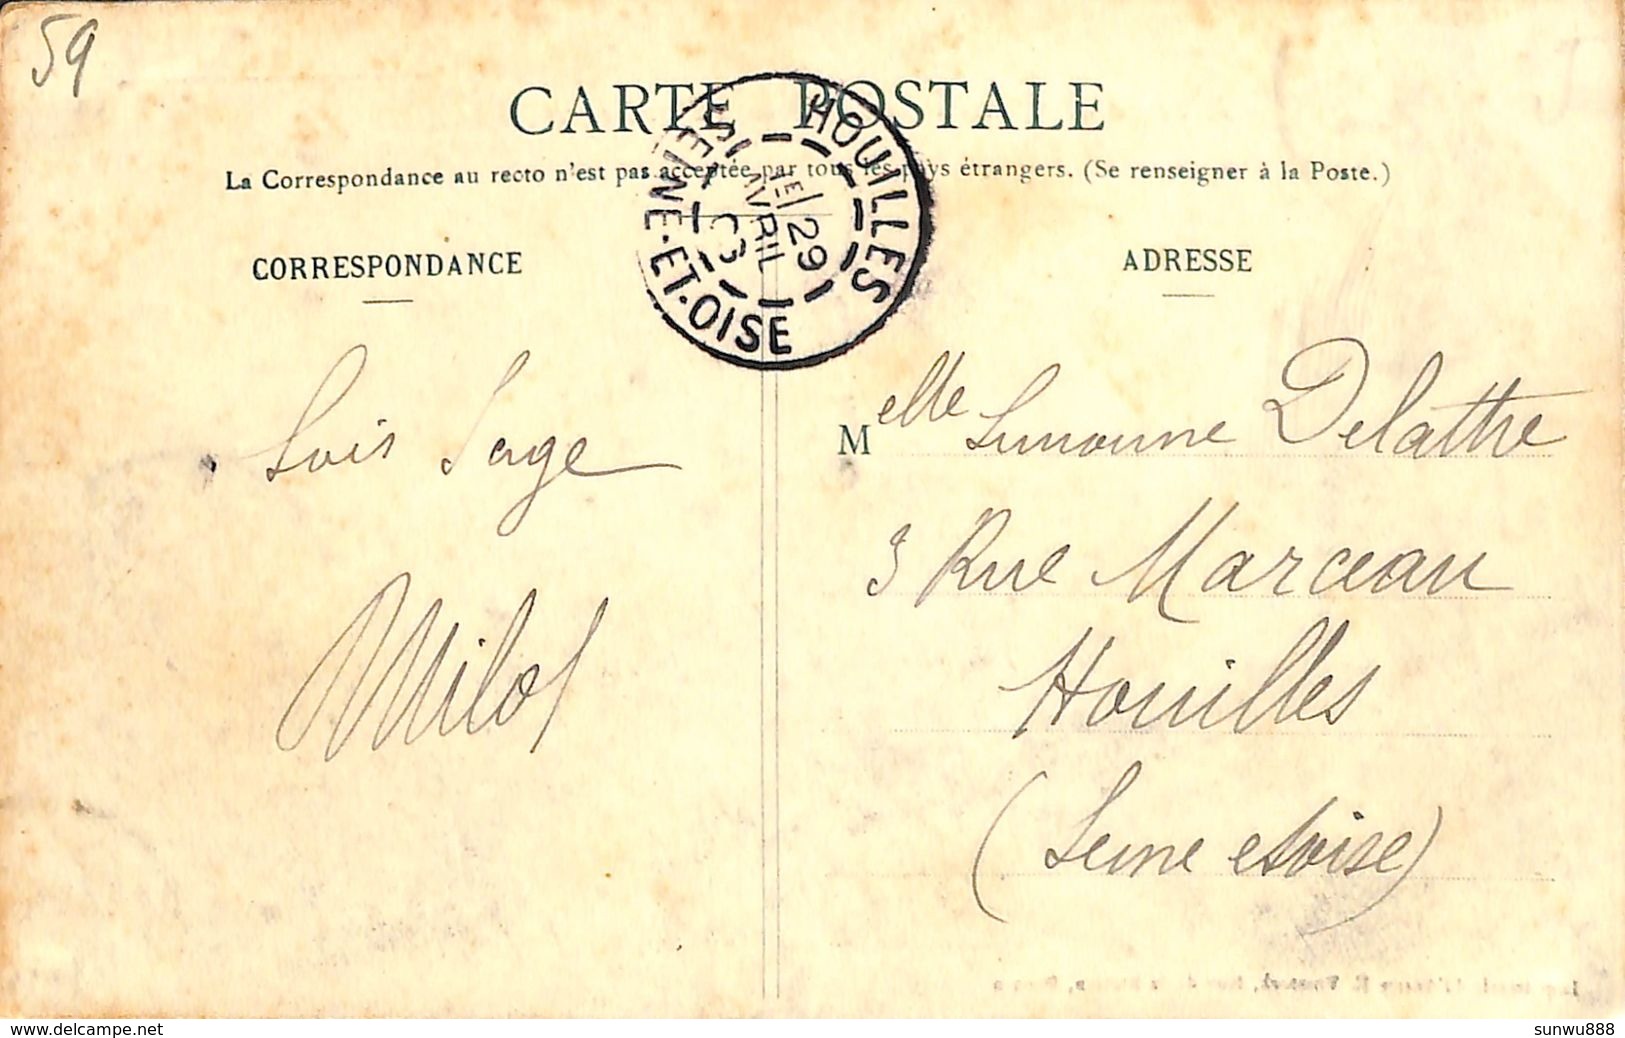 59
CARTE POSTALE
La Correspondance au recto n'est pas acceptée par tous les pays étrangers. (Se renseigner à la Poste.)
HOUILLES
SEINE-ET-OISE
1E/29
AVRIL
03
CORRESPONDANCE
Sois Sage
Milot
ADRESSE
Melle Simonne Delattre
3 Rue Marceau
Houilles
(Seine et oise)
www.delcampe.net
sunwu888